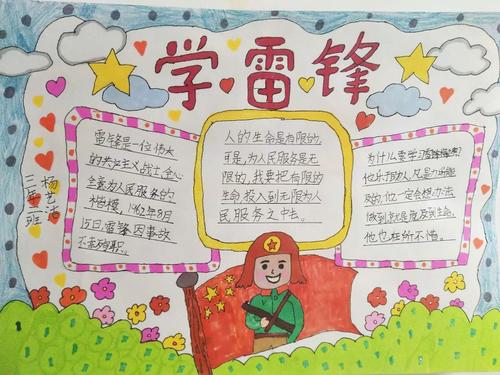 学雷锋
三年班
杨艺洁
雷锋是一位伟大
的共产主义战士,全心
全意为人民服务的
楷模,1962年8月
15日,雷锋因事故
不幸殉职。
人的生命是有限的,
可是,为人民服务是无
限的,我要把有限的
生命,投入到无限为人
民服务之中去。
为什么要学习雷锋精神?
他乐于助人,凡是力所能
及的,他一定会想办法
做到,就是危及到生命,
他也在所不惜。